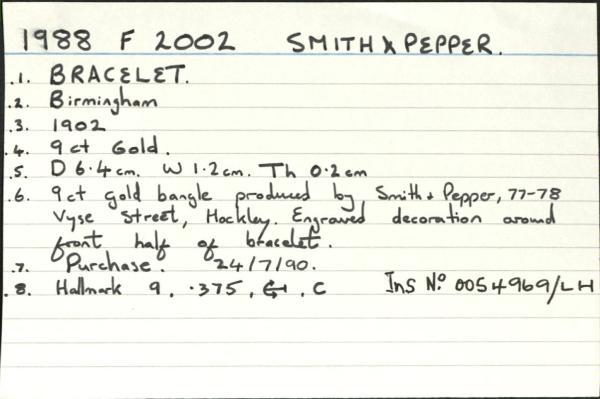 1988 F 2002 SMITH & PEPPER.
.1. BRACELET.
.2. Birmingham
.3. 1902
.4. 9ct Gold.
.5. D 6.4cm. W 1.2cm. Th 0.2cm
.6. 9ct gold bangle produced by Smith & Pepper, 77-78
Vyse Street, Hockley. Engraved decoration around
front half of bracelet.
.7. Purchase. 24/7/90.
.8. Hallmark 9, .375, , C Ins No. 0054969/LH